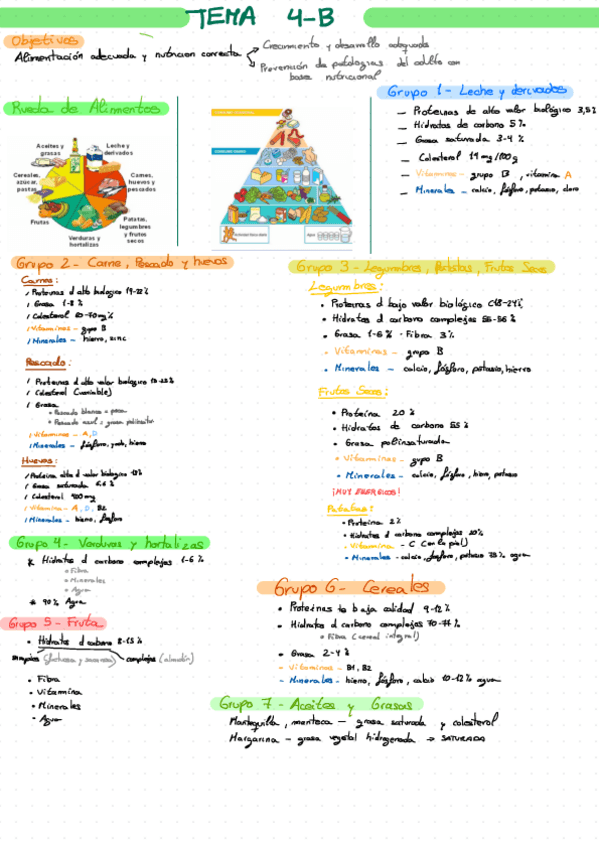 TEMA 4-B
Objetivos
Alimentación adecuada y nutricion correcta
Crecimiento y desarrollo adecuado
Prevención de patologias del adulto con
base nutricional
Rueda de Alimentos
Aceites y
grasas
Leche y
derivados
Cereales,
azúcar,
pastas
Carnes,
huevos y
pescados
Frutas
Patatas,
legumbres
y frutos
secos
Verduras y
hortalizas
Grupo 1 - Leche y derivados
— Proteinas de alto valor biológico 3,5%
— Hidratos de carbono 5%
— Grasa saturada 3-4 %
— Colesterol 14 mg/100g
— Vitaminas - grupo B, vitamina A
— Minerales - calcio, fósforo, potasio, cloro
Grupo 2 - Carne, Pescado y huevos
Carnes:
/ Proteinas d alto biologico
/ Grasa 1-8 %
/ Colesterol
/ Vitaminas - grupo B
/ Minerales - hierro, zinc
Pescado:
/ Proteinas d alto valor biologico
/ Colesterol (variable)
/ Grasa
Pescado blanco = poca
Pescado azul :
/ Vitaminas - A, D
/ Minerales - fósforo, yodo, hierro
Huevos:
/ Proteina alto d valor biologico
/ Grasa saturada
/ Colesterol
/ Vitamina - A, D, B2
/ Minerales - hierro, fosforo
Grupo 3 - Legumbres, Patatas, Frutos Secos
Legumbres:
• Proteinas d bajo valor biológico (18-24%
• Hidratos d carbono complejos 55-56 %
• Grasa 1-6 % - Fibra 3%
• Vitaminas - grupo B
• Minerales - calcio, fósforo, potasio, hierro
Frutos Secos:
• Proteina 20 %
• Hidratos de carbono 55 %
• Grasa poliinsaturada
• Vitaminas - grupo B
• Minerales - calcio, fósforo, hierro, potasio
¡MUY ENERGICOS!
Patatas:
• Proteina 2%
• Hidratos d carbono complejos 20%
• Vitamina - C (en la piel)
• Minerales - calcio, fosforo, potasio 75% agua
Grupo 4 - Verduras y hortalizas
* Hidratos d carbono complejos 1-6 %
• Fibra
• Minerales
• Agua
* 90% Agua
Grupo 5 - Fruta
• Hidratos d carbono 8-15 %
simples (fructosa y sacarosa) complejos (almidón)
• Fibra
• Vitamina
• Minerales
• Agua
Grupo 6 - Cereales
• Proteinas baja calidad 9-12%
• Hidratos d carbono complejos 70-77 %
• Fibra (cereal integral)
• Grasa 2-4 %
— Vitaminas - B1, B2
— Minerales - hierro, fósforo, calcio 10-12% agua
Grupo 7 - Aceites y Grasas
Mantequilla, manteca — grasa saturada y colesterol
Margarina — grasa vegetal hidrogenada → SATURADA